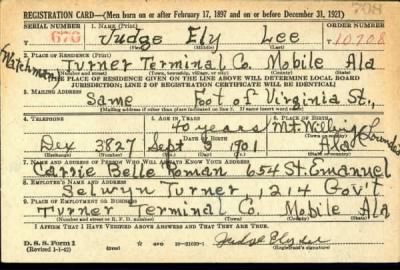 708
REGISTRATION CARD—(Men born on or after February 17, 1897 and on or before December 31, 1921)
SERIAL NUMBER 1. NAME (Print) ORDER NUMBER
676 Judge Ely Lee 10708
(First) (Middle) (Last)
Watchman
2. PLACE OF RESIDENCE (Print)
Turner Terminal Co. Mobile Ala
(Number and street) (Town, township, village, or city) (County) (State)
[THE PLACE OF RESIDENCE GIVEN ON THE LINE ABOVE WILL DETERMINE LOCAL BOARD
JURISDICTION; LINE 2 OF REGISTRATION CERTIFICATE WILL BE IDENTICAL]
3. MAILING ADDRESS
Same Foot of Virginia St.,
[Mailing address if other than place indicated on line 2. If same insert word same]
4. TELEPHONE 5. AGE IN YEARS 6. PLACE OF BIRTH
40 years Mt. Willing Lowndes
DATE OF BIRTH
Dex 3827 Sept 3 1901 Ala
(Exchange) (Number) (Mo.) (Day) (Yr.) (State or country)
7. NAME AND ADDRESS OF PERSON WHO WILL ALWAYS KNOW YOUR ADDRESS
Carrie Belle Roman 654 St. Emanuel
8. EMPLOYER'S NAME AND ADDRESS
Selwyn Turner, 1214 Gov't
9. PLACE OF EMPLOYMENT OR BUSINESS
Turner Terminal Co. Mobile Ala
(Number and street or R. F. D. number) (Town) (County) (State)
I AFFIRM THAT I HAVE VERIFIED ABOVE ANSWERS AND THAT THEY ARE TRUE.
D. S. S. Form 1
(Revised 1-1-42) (over) Judge Ely Lee
(Registrant's signature)